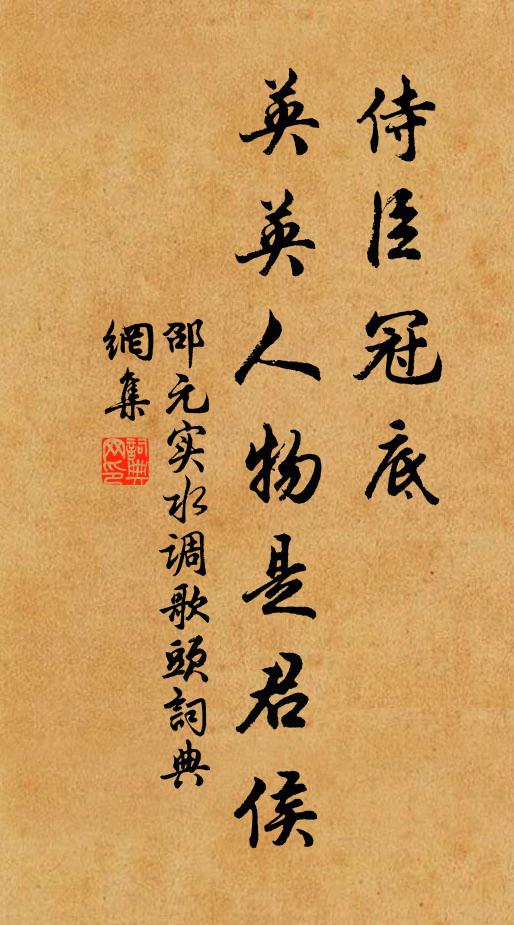 侍臣冠底
英英人物是君侯
邵元实水调歌头詞典
網集
詞典
网印